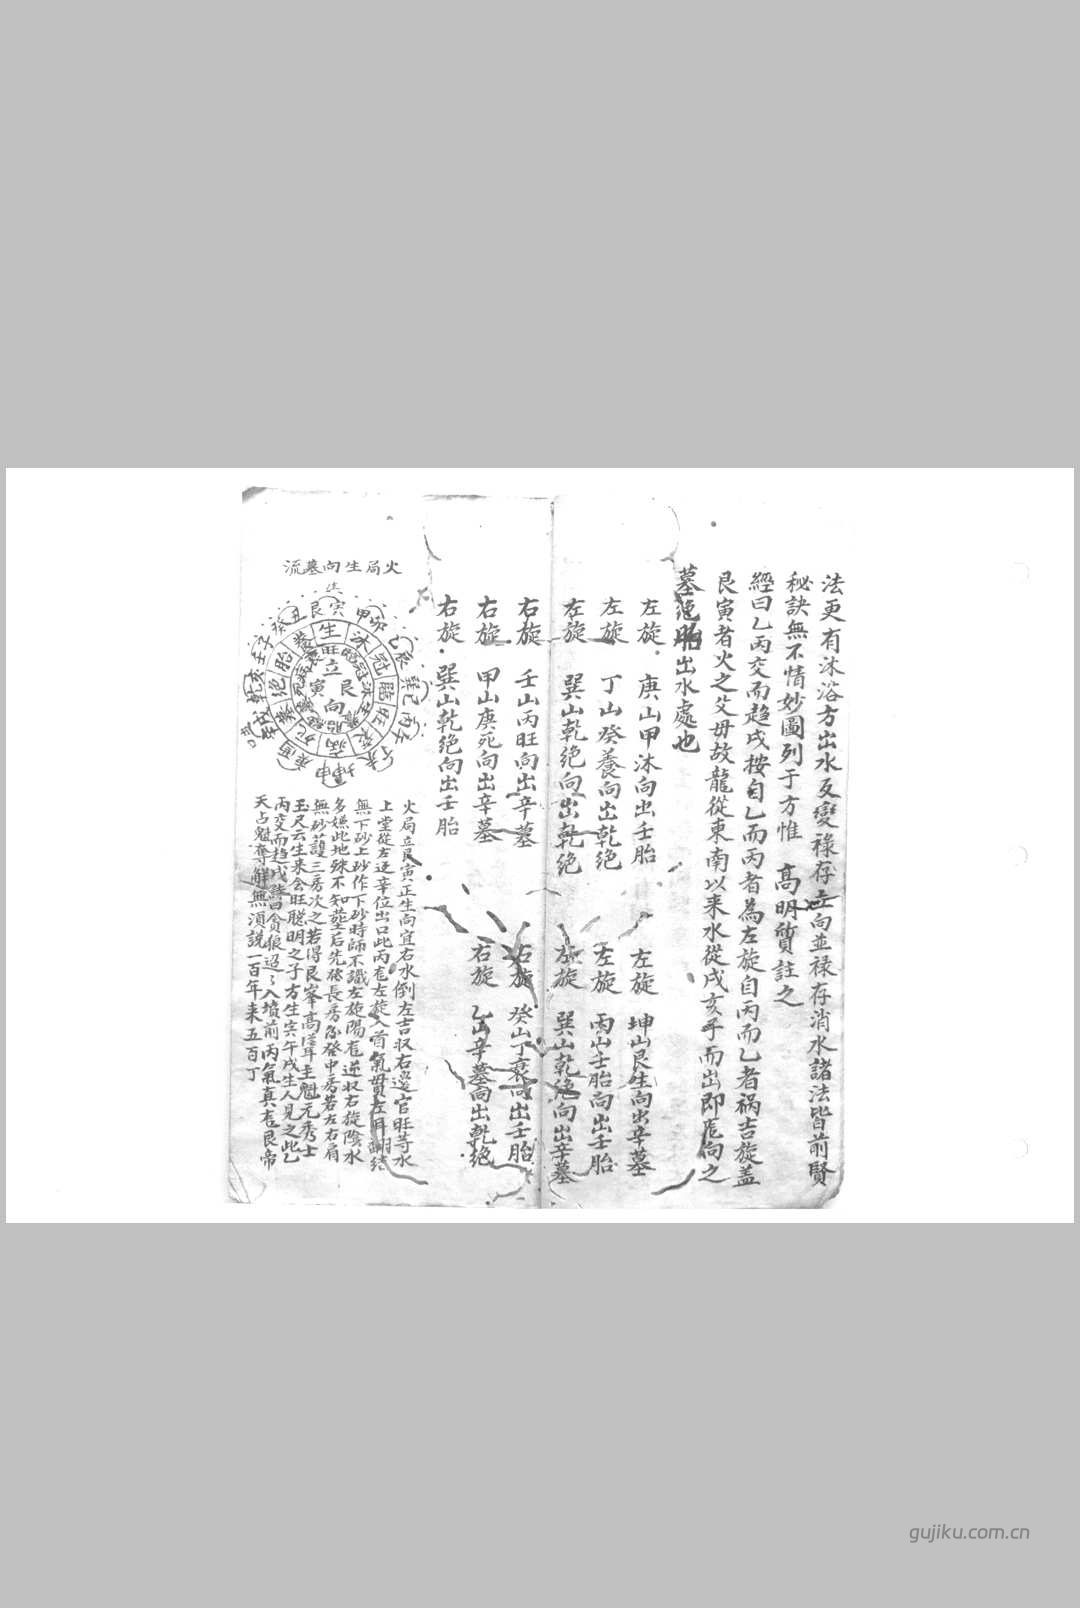 法更有沐浴方出水反變祿存立向並祿存消水諸法皆前賢
秘訣無不情妙圖列于方惟 高明質註之
經曰乙丙交而趋戌按自乙而丙者為左旋自丙而乙者祸吉旋盖
艮寅者火之父毋故龍從東南以来水從戌亥乎而出即厎向之
墓絶胎出水處也
左旋 庚山甲沐向出壬胎
左旋 坤山艮生向出辛墓
左旋 丁山癸養向出乾绝
左旋 丙山壬胎向出壬胎
左旋 巽山乾绝向出乾绝
左旋 巽山乾绝向出辛墓
右旋 壬山丙旺向出辛墓
右旋 癸山丁衰向出壬胎
右旋 甲山庚死向出辛墓
右旋 乙山辛墓向出乾绝
右旋 巽山乾绝向出壬胎
火局生向墓流
生
艮寅 甲卯 乙辰 巽巳 丙午 丁未 坤申 庚酉 辛戌 乾亥 壬子 癸丑
生 沐 冠 臨 旺 衰 病 死 墓 绝 胎 养
立艮寅向
火局立艮寅正生向宜右水倒左吉収右邊官旺等水
上堂從左逆辛位出口此丙龙左旋入首氣貫左耳
無下砂上砂作下砂時師不識左旋陽龙逆収右旋陰水
多嫌此地殊不知塟后先發長房後發中房若左右肩
無砂護三房次之若得艮峯高聳主魁元秀士
玉尺云生来会旺聪明之子方生寅午戌生人見之此乙
丙交而趋戌訣曰貪狼迢〻入墳前丙氣真龙艮帝
天占魁奪解無須説一百年来五百丁